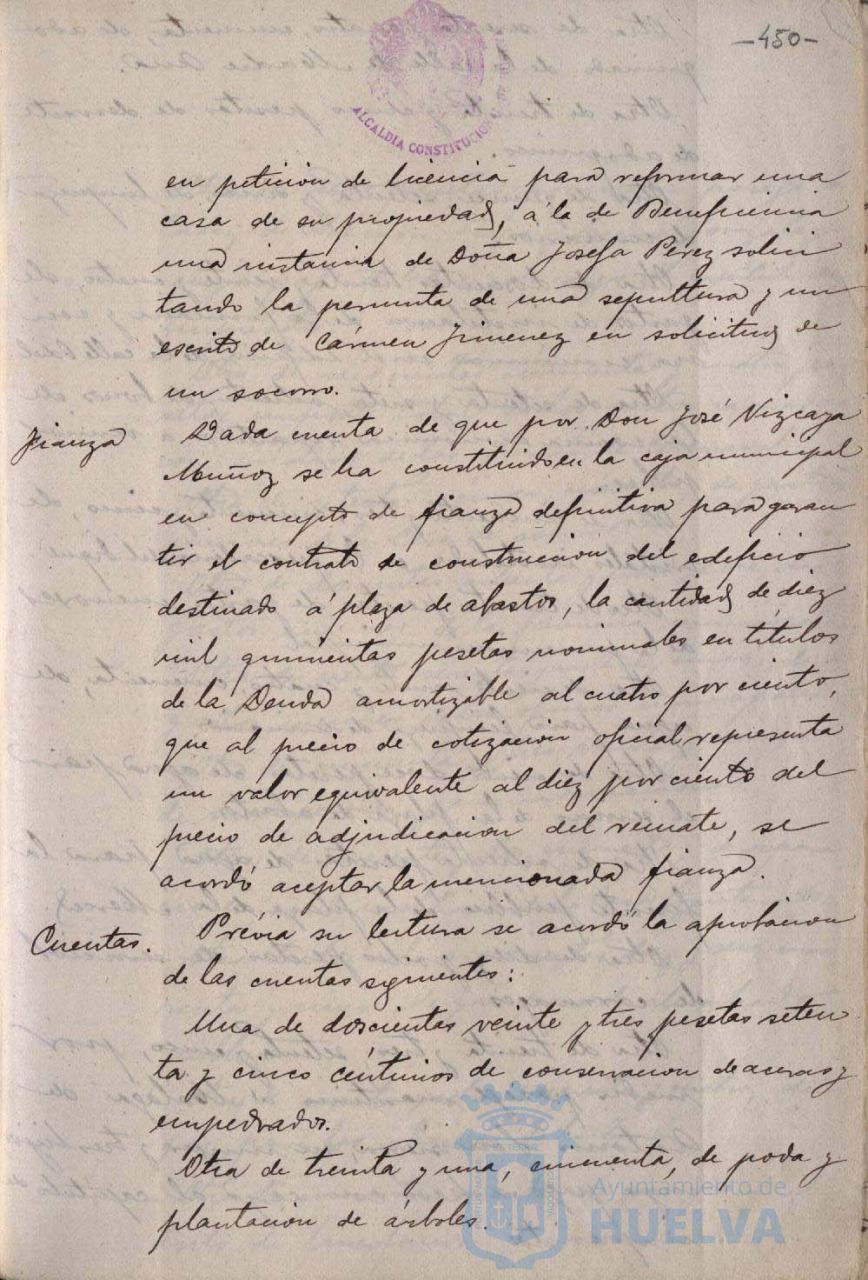 -450-
ALCALDIA CONSTITUCION
en peticion de licencia para reformar una
casa de su propiedad, á la de Beneficencia
una instancia de Doña Josefa Perez solici
tando la permuta de una sepultura y un
escrito de Cármen Jimenez en solicitud de
un socorro.
Fianza
Dada cuenta de que por Don José Vizcaya
Muñoz se ha constituido en la caja municipal
en concepto de fianza definitiva para garan
tir el contrato de construccion del edificio
destinado á plaza de abastos, la cantidad de diez
mil quinientas pesetas nominales en titulos
de la Deuda amortizable al cuatro por ciento,
que al precio de cotizacion oficial representa
un valor equivalente al diez por ciento del
precio de adjudicacion del remate, se
acordó aceptar la mencionada fianza.
Cuentas.
Prévia su lectura se acordó la aprobacion
de las cuentas siguientes:
Una de doscientas veinte y tres pesetas seten
ta y cinco céntimos de conservacion de aceras y
empedrados.
Otra de treinta y una, cincuenta, de poda y
plantacion de árboles.
Ayuntamiento de
HUELVA